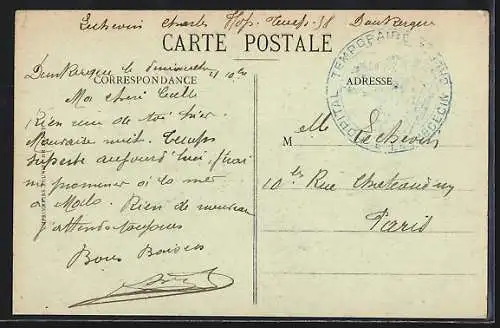 Lechevin Charles Hôp. Temp. 38 Dunkerque
CARTE POSTALE
Dunkerque le dimanche
CORRESPONDANCE
ADRESSE
HOPITAL TEMPORAIRE
Ma chère
Rien reçu de toi hier.
Mauvaise nuit. Temps
superbe aujourd'hui. J'irai
me promener à la mer
à Malo. Rien de nouveau
j'attends toujours
Bons Baisers
M elle Lechevin
10 bis Rue Chateaudun
Paris